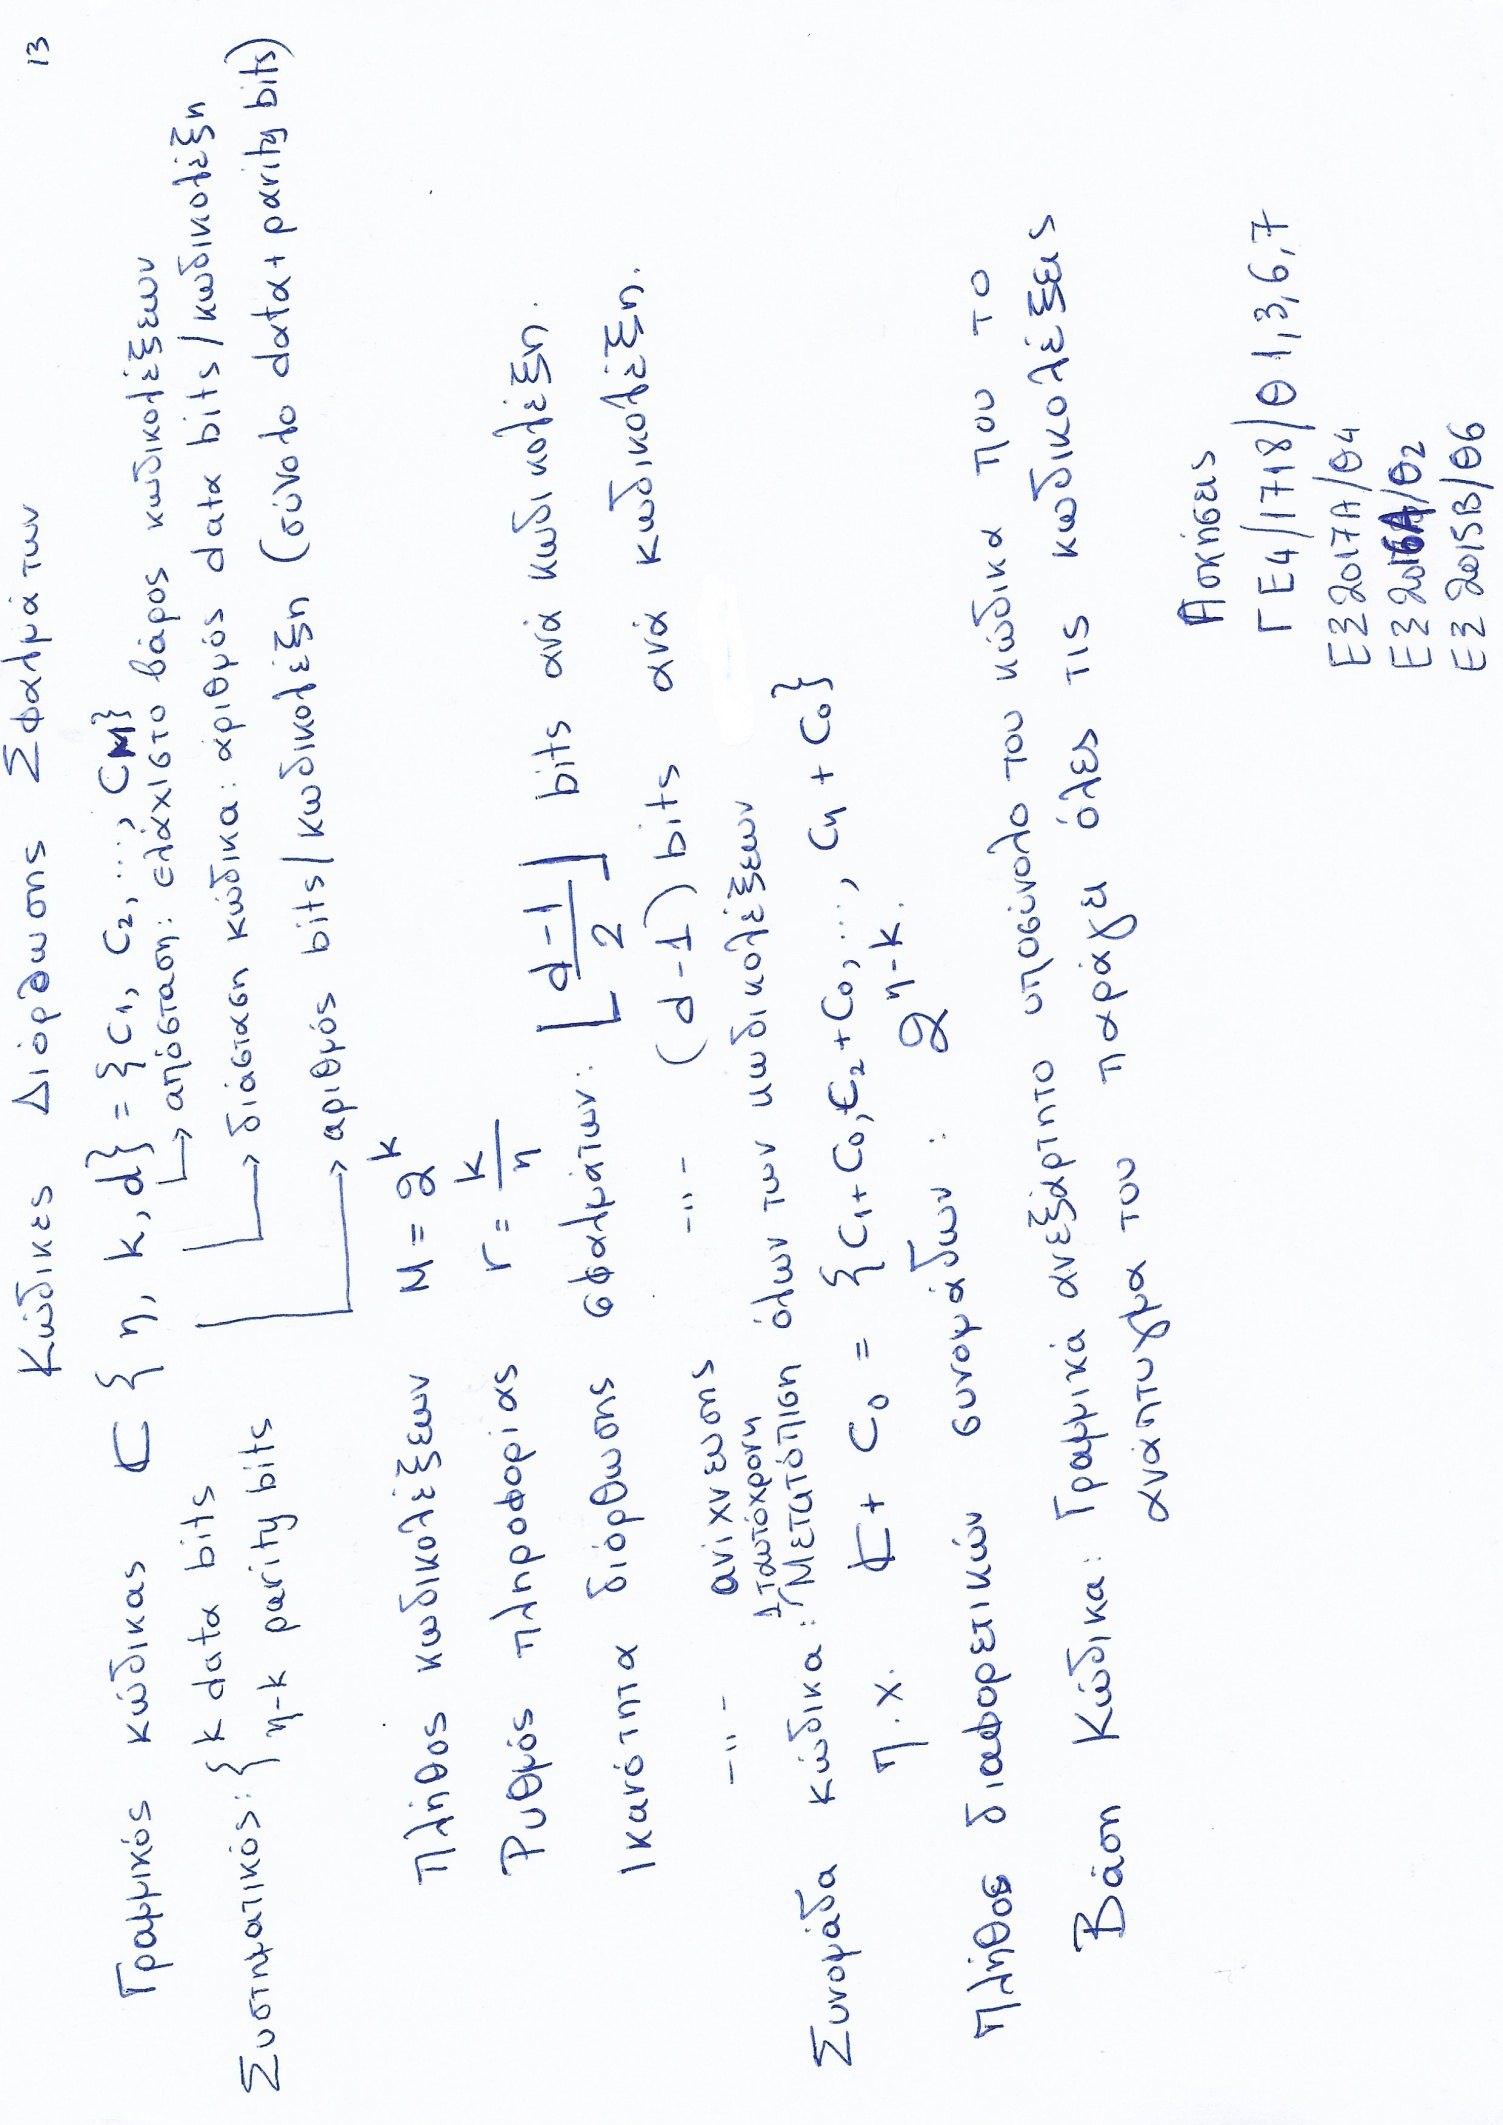 13
Κώδικες Διόρθωσης Σφαλμάτων
Γραμμικός κώδικας C {η, k, d} = {C1, C2, ..., CM}
↳ απόσταση: ελάχιστο βάρος κωδικολέξεων
Συστηματικός: { k data bits
η-k parity bits
↳ διάσταση κώδικα: αριθμός data bits/κωδικολέξη
→ αριθμός bits/κωδικολέξη (σύνολο data + parity bits)
Πλήθος κωδικολέξεων M = 2^k
Ρυθμός πληροφορίας r = k/η
Ικανότητα διόρθωσης σφαλμάτων: ⌊(d-1)/2⌋ bits ανά κωδικολέξη.
-"- ανίχνευσης -"- (d-1) bits ανά κωδικολέξη.
ταυτόχρονη
Συνομάδα κώδικα: Μετατόπιση όλων των κωδικολέξεων
π.χ. C + C0 = {C1+C0, C2+C0, ..., Cη + C0}
Πλήθος διαφορετικών συνομάδων: 2^η-k.
Βάση Κώδικα: Γραμμικά ανεξάρτητο υποσύνολο του κώδικα που το
ανάπτυγμα του παράγει όλες τις κωδικολέξεις
Ασκήσεις
ΓΕ4/1718/Θ1,3,6,7
ΕΞ2017Α/Θ4
ΕΞ2016Α/Θ2
ΕΞ2015Β/Θ6